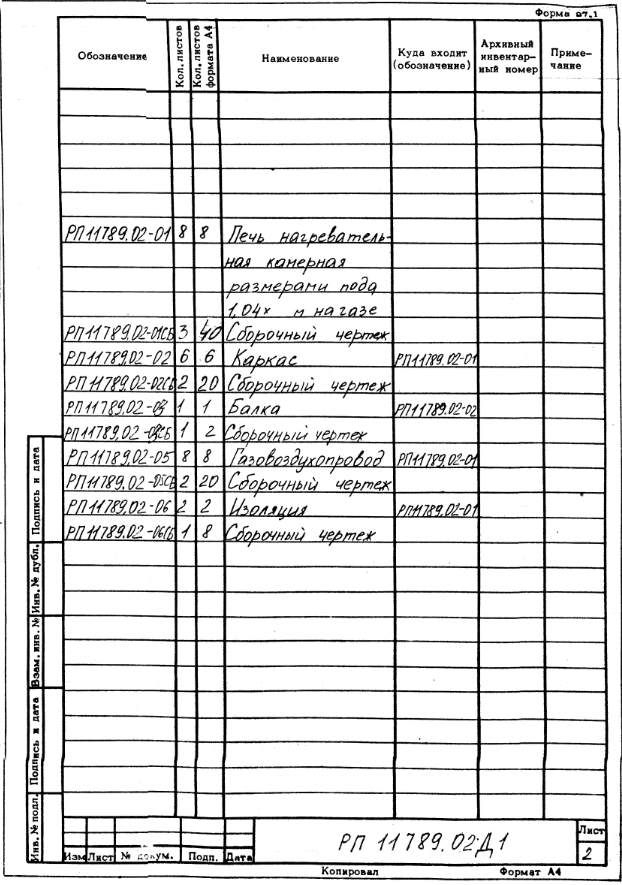 Форма 27.1
Обозначение Кол. листов Кол. листов формата А4 Наименование Куда входит (обозначение) Архивный инвентарный номер Примечание
РП11789.02-01 8 8 Печь нагреватель-
ная камерная
размерами пода
1,04x м на газе
РП11789.02-01СБ 3 40 Сборочный чертеж
РП11789.02-02 6 6 Каркас РП11789.02-01
РП11789.02-02СБ 2 20 Сборочный чертеж
РП11789.02-03 1 1 Балка РП11789.02-02
РП11789.02-03СБ 1 2 Сборочный чертеж
РП11789.02-05 8 8 Газовоздухопровод РП11789.02-01
РП11789.02-05СБ 2 20 Сборочный чертеж
РП11789.02-06 2 2 Изоляция РП11789.02-01
РП11789.02-06СБ 1 8 Сборочный чертеж
Подпись и дата
Инв. № дубл.
Взам. инв. №
Подпись и дата
Инв. № подл.
РП 11789.02Д1
Лист
2
Изм Лист № докум. Подп. Дата
Копировал Формат А4